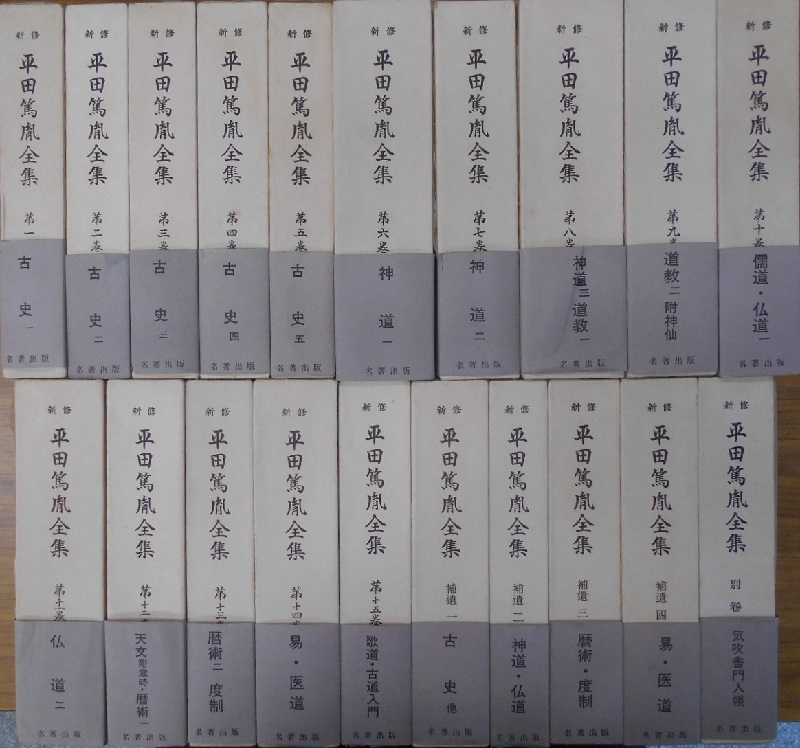 新修
平田篤胤全集
第一
古史 一
名著出版
新修
平田篤胤全集
第二巻
古史 二
名著出版
新修
平田篤胤全集
第三巻
古史 三
名著出版
新修
平田篤胤全集
第四巻
古史 四
名著出版
新修
平田篤胤全集
第五巻
古史 五
名著出版
新修
平田篤胤全集
第六巻
神道 一
名著出版
新修
平田篤胤全集
第七巻
神道 二
名著出版
新修
平田篤胤全集
第八巻
神道三 道教一
名著出版
新修
平田篤胤全集
第九巻
道教二 附神仙
名著出版
新修
平田篤胤全集
第十巻
儒道・仏道一
名著出版
新修
平田篤胤全集
第十一巻
仏道 二
名著出版
新修
平田篤胤全集
第十二
天文附歳時・暦術一
名著出版
新修
平田篤胤全集
第十三巻
暦術二 度制
名著出版
新修
平田篤胤全集
第十四巻
易・医道
名著出版
新修
平田篤胤全集
第十五巻
歌道・古道入門
名著出版
新修
平田篤胤全集
補遺 一
古史 他
名著出版
新修
平田篤胤全集
補遺 二
神道・仏道
名著出版
新修
平田篤胤全集
補遺 三
暦術・度制
名著出版
新修
平田篤胤全集
補遺 四
易・医道
名著出版
新修
平田篤胤全集
別巻
気吹舎門人帳
名著出版